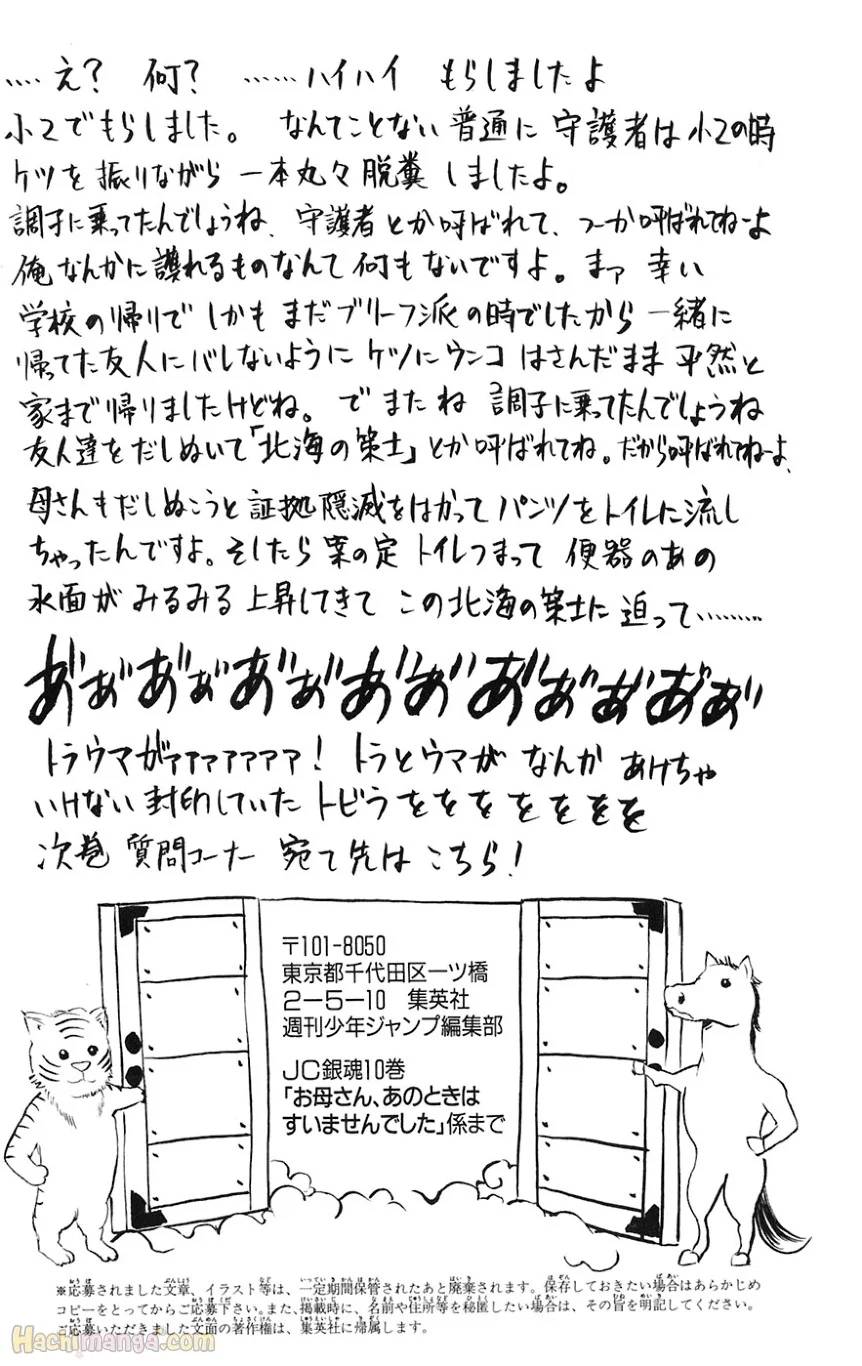 ‥‥え？ 何？ ‥‥‥ハイハイ もらしましたよ
小2でもらしました。 なんてことない普通に 守護者は小2の時
ケツを振りながら 一本丸々脱糞しましたよ。
調子に乗ってたんでしょうね、守護者とか呼ばれて、つーか呼ばれてねーよ
俺なんかに護れるものなんて何もないですよ。まァ 幸い
学校の帰りで しかも まだブリーフ派の時でしたから 一緒に
帰ってた友人にバレないように ケツにウンコ はさんだまま 平然と
家まで帰りましたけどね。 で またね 調子に乗ってたんでしょうね
友人達をだしぬいて「北海の策士」とか呼ばれてね。だから呼ばれてねーよ、
母さんもだしぬこうと証拠隠滅をはかって パンツをトイレに流し
ちゃったんですよ。そしたら案の定 トイレつまって 便器のあの
水面が みるみる上昇してきて この北海の策士に 迫って‥‥‥‥
あ゛ぁ゛あ゛ぁ゛あ゛ぁ゛あ゛あ゛あ゛ぁ゛ぁ゛あ゛ぁ゛
トラウマがァァァァァァァ！ トラとウマが なんか あけちゃ
いけない 封印していた トビラををををををを
次巻 質問コーナー 宛て先は こちら！
〒101-8050
東京都千代田区一ツ橋
2－5－10 集英社
週刊少年ジャンプ編集部
JC銀魂10巻
「お母さん、あのときは
すいませんでした」係まで
※応募されました文章、イラスト等は、一定期間保管されたあと廃棄されます。保存しておきたい場合はあらかじめ
コピーをとってからご応募下さい。また、掲載時に、名前や住所等を秘匿したい場合は、その旨を明記してください。
ご応募いただきました文面の著作権は、集英社に帰属します。
Hachimanga.com